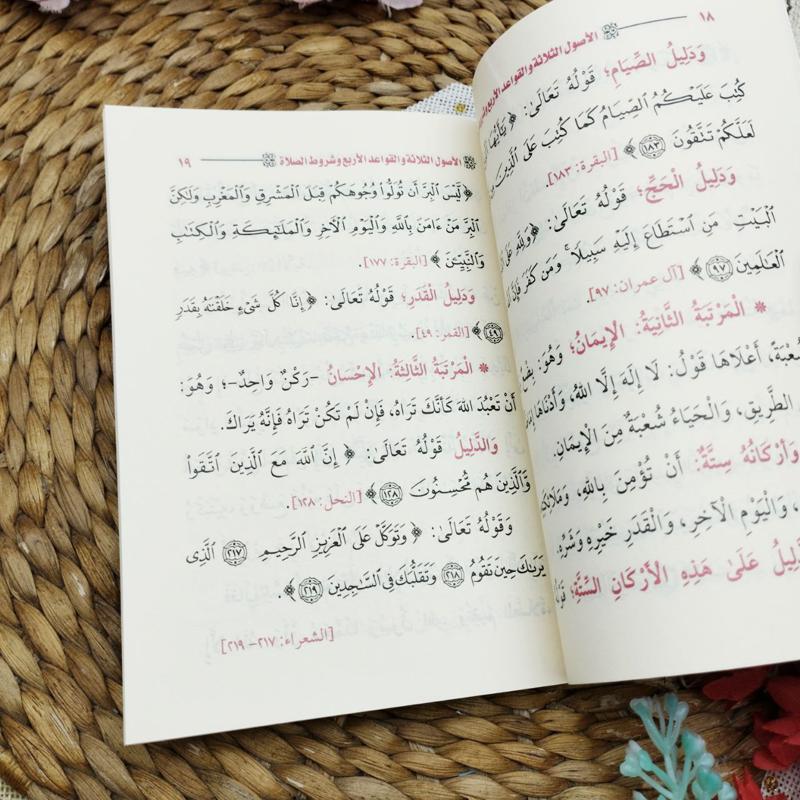 ١٨ الأصول الثلاثة والقواعد الأربع
وَدَلِيلُ الصِّيَامِ؛ قَوْلُهُ تَعَالَىٰ: ﴿يَٰٓأَيُّهَا
كُتِبَ عَلَيۡكُمُ ٱلصِّيَامُ كَمَا كُتِبَ عَلَى ٱلَّذِينَ مِن
لَعَلَّكُمۡ تَتَّقُونَ ١٨٣﴾ [البقرة: ١٨٣].
وَدَلِيلُ الْحَجِّ؛ قَوْلُهُ تَعَالَىٰ: ﴿وَلِلَّهِ عَلَى
ٱلۡبَيۡتِ مَنِ ٱسۡتَطَاعَ إِلَيۡهِ سَبِيلٗاۚ وَمَن كَفَرَ فَإِنَّ
ٱلۡعَٰلَمِينَ ٩٧﴾ [آل عمران: ٩٧].
* الْمَرْتَبَةُ الثَّانِيَةُ: الإِيمَانُ؛ وَهُوَ: بِضْعٌ
شُعْبَةً، أَعْلَاهَا قَوْلُ: لَا إِلَهَ إِلَّا اللهُ، وَأَدْنَاهَا
الطَّرِيقِ، وَالْحَيَاءُ شُعْبَةٌ مِنَ الإِيمَانِ.
وَأَرْكَانُهُ سِتَّةٌ: أَنْ تُؤْمِنَ بِاللهِ، وَمَلَائِكَتِهِ
، وَالْيَوْمِ الْآخِرِ، وَالْقَدَرِ خَيْرِهِ وَشَرِّهِ.
عَلَىٰ هَذِهِ الأَرْكَانِ السِّتَّةِ؛
الأصول الثلاثة والقواعد الأربع وشروط الصلاة ١٩
﴿لَّيۡسَ ٱلۡبِرَّ أَن تُوَلُّواْ وُجُوهَكُمۡ قِبَلَ ٱلۡمَشۡرِقِ وَٱلۡمَغۡرِبِ وَلَٰكِنَّ
ٱلۡبِرَّ مَنۡ ءَامَنَ بِٱللَّهِ وَٱلۡيَوۡمِ ٱلۡأٓخِرِ وَٱلۡمَلَٰٓئِكَةِ وَٱلۡكِتَٰبِ
وَٱلنَّبِيِّـۧنَ﴾ [البقرة: ١٧٧].
وَدَلِيلُ الْقَدَرِ؛ قَوْلُهُ تَعَالَىٰ: ﴿إِنَّا كُلَّ شَيۡءٍ خَلَقۡنَٰهُ بِقَدَرٖ
٤٩﴾ [القمر: ٤٩].
* الْمَرْتَبَةُ الثَّالِثَةُ: الإِحْسَانُ -رُكْنٌ وَاحِدٌ-؛ وَهُوَ:
أَنْ تَعْبُدَ اللهَ كَأَنَّكَ تَرَاهُ، فَإِنْ لَمْ تَكُنْ تَرَاهُ فَإِنَّهُ يَرَاكَ.
وَالدَّلِيلُ قَوْلُهُ تَعَالَىٰ: ﴿إِنَّ ٱللَّهَ مَعَ ٱلَّذِينَ ٱتَّقَواْ
وَّٱلَّذِينَ هُم مُّحۡسِنُونَ ١٢٨﴾ [النحل: ١٢٨].
وَقَوْلُهُ تَعَالَىٰ: ﴿وَتَوَكَّلۡ عَلَى ٱلۡعَزِيزِ ٱلرَّحِيمِ ٢١٧ ٱلَّذِي
يَرَىٰكَ حِينَ تَقُومُ ٢١٨ وَتَقَلُّبَكَ فِي ٱلسَّٰجِدِينَ ٢١٩﴾.
[الشعراء: ٢١٧-٢١٩]